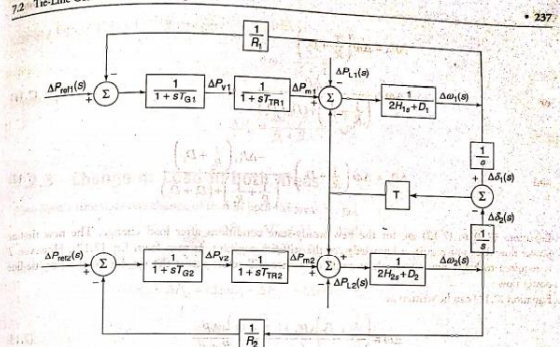 7.2 Tie-Line
• 237
1
R1
ΔPL1(s)
ΔPref1(s)
1
1 + sTG1
ΔPV1
1
1 + sTTR1
ΔPm1
Σ
Σ
1
2H1s+D1
Δω1(s)
1
s
Δδ1(s)
T
Σ
Δδ2(s)
1
s
ΔPref2(s)
Σ
1
1 + sTG2
ΔPV2
1
1 + sTTR2
ΔPm2
Σ
ΔPL2(s)
1
2H2s+D2
Δω2(s)
1
R2